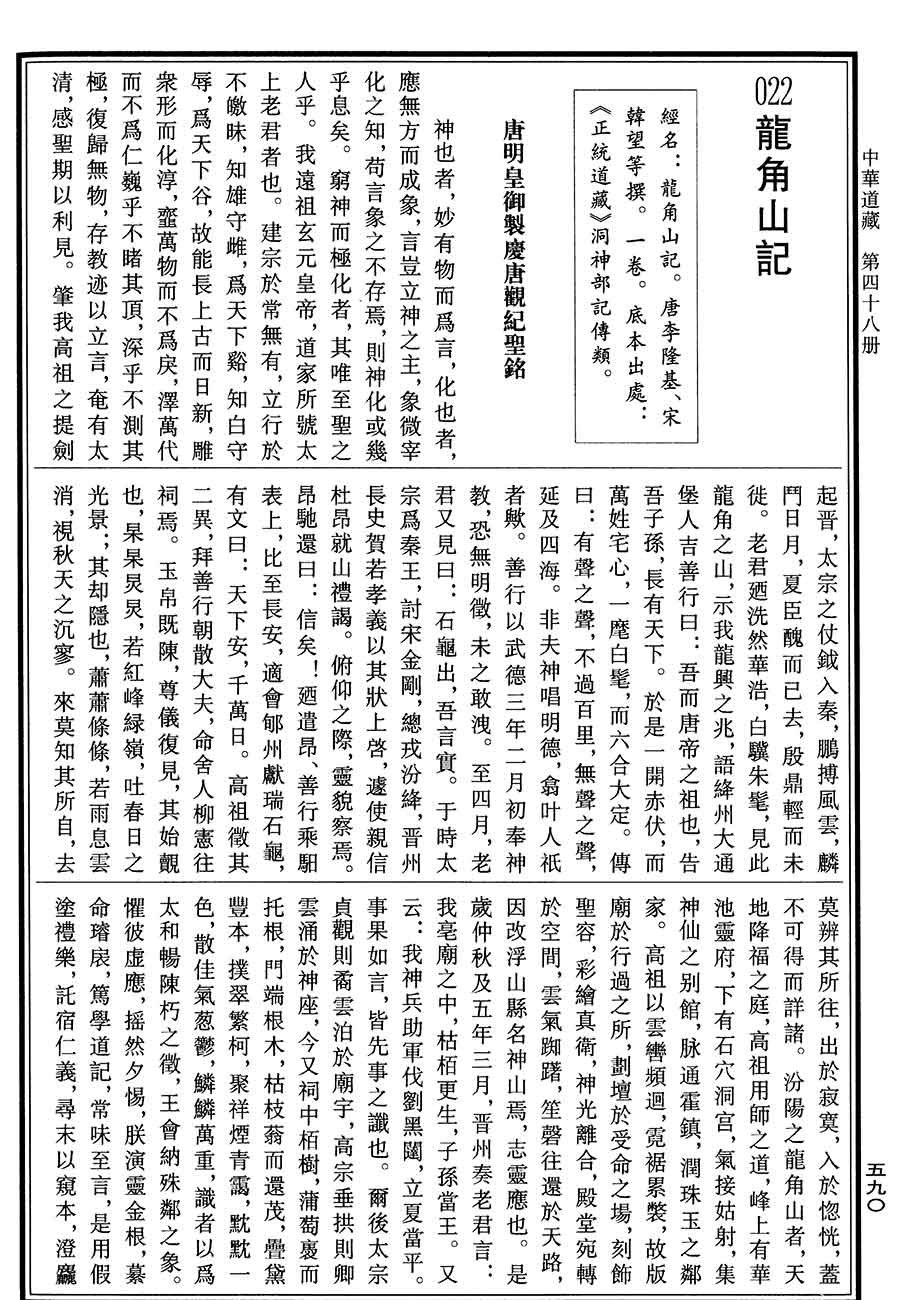 中華道藏　第四十八册
五九〇
022龍角山記
經名：龍角山記。唐李隆基、宋
韓望等撰。一卷。底本出處：
《正統道藏》洞神部記傳類。
唐明皇御製慶唐觀紀聖銘
神也者，妙有物而爲言，化也者，
應無方而成象，言豈立神之主，象微宰
化之知，苟言象之不存焉，則神化或幾
乎息矣。窮神而極化者，其唯至聖之
人乎。我遠祖玄元皇帝，道家所號太
上老君者也。建宗於常無有，立行於
不皦昧，知雄守雌，爲天下谿，知白守
辱，爲天下谷，故能長上古而日新，雕
衆形而化淳，韲萬物而不爲戾，澤萬代
而不爲仁巍乎不睹其頂，深乎不測其
極，復歸無物，存教迹以立言，奄有太
清，感聖期以利見。肇我高祖之提劍
起晉，太宗之仗鉞入秦，鵬搏風雲，麟
鬥日月，夏臣醜而已去，殷鼎輕而未
徙。老君廼洗然華浩，白驥朱髦，見此
龍角之山，示我龍興之兆，語絳州大通
堡人吉善行曰：吾而唐帝之祖也，告
吾子孫，長有天下。於是一開赤伏，而
萬姓宅心，一麾白髦，而六合大定。傳
曰：有聲之聲，不過百里，無聲之聲，
延及四海。非夫神唱明德，翕叶人祇
者歟。善行以武德三年二月初奉神
教，恐無明徵，未之敢洩。至四月，老
君又見曰：石龜出，吾言實。于時太
宗爲秦王，討宋金剛，總戎汾絳，晉州
長史賀若孝義以其狀上啓，遽使親信
杜昂就山禮謁。俯仰之際，靈貌察焉。
昂馳還曰：信矣！廼遣昂、善行乘馹
表上，比至長安，適會郇州獻瑞石龜，
有文曰：天下安，千萬日。高祖徵其
二異，拜善行朝散大夫，命舍人柳憲往
祠焉。玉帛既陳，尊儀復見，其始覿
也，杲杲炅炅，若紅峰緑嶺，吐春日之
光景；其却隱也，蕭蕭條條，若雨息雲
消，視秋天之沉寥。來莫知其所自，去
莫辨其所往，出於寂寞，入於惚恍，蓋
不可得而詳諸。汾陽之龍角山者，天
地降福之庭，高祖用師之道，峰上有華
池靈府，下有石穴洞宫，氣接姑射，集
神仙之别館，脉通霍鎮，潤珠玉之鄰
家。高祖以雲轡頻迴，霓裾累褺，故版
廟於行過之所，劃壇於受命之場，刻飾
聖容，彩繪真衛，神光離合，殿堂宛轉
於空間，雲氣踟躇，笙磬往還於天路，
因改浮山縣名神山焉，志靈應也。是
歲仲秋及五年三月，晉州奏老君言：
我亳廟之中，枯栢更生，子孫當王。又
云：我神兵助軍伐劉黑闥，立夏當平。
事果如言，皆先事之讖也。爾後太宗
貞觀則矞雲泊於廟宇，高宗垂拱則卿
雲涌於神座，今又祠中栢樹，蒲萄裹而
托根，門端根木，枯枝蓊而還茂，疊黛
豐本，撲翠繁柯，聚祥煙青靄，黕黕一
色，散佳氣葱鬱，鱗鱗萬重，識者以爲
太和暢陳朽之徵，王會納殊鄰之象。
懼彼虚應，摇然夕惕，朕演靈金根，纂
命璿扆，篤學道記，常味至言，是用假
塗禮樂，託宿仁義，尋末以窺本，澄麤